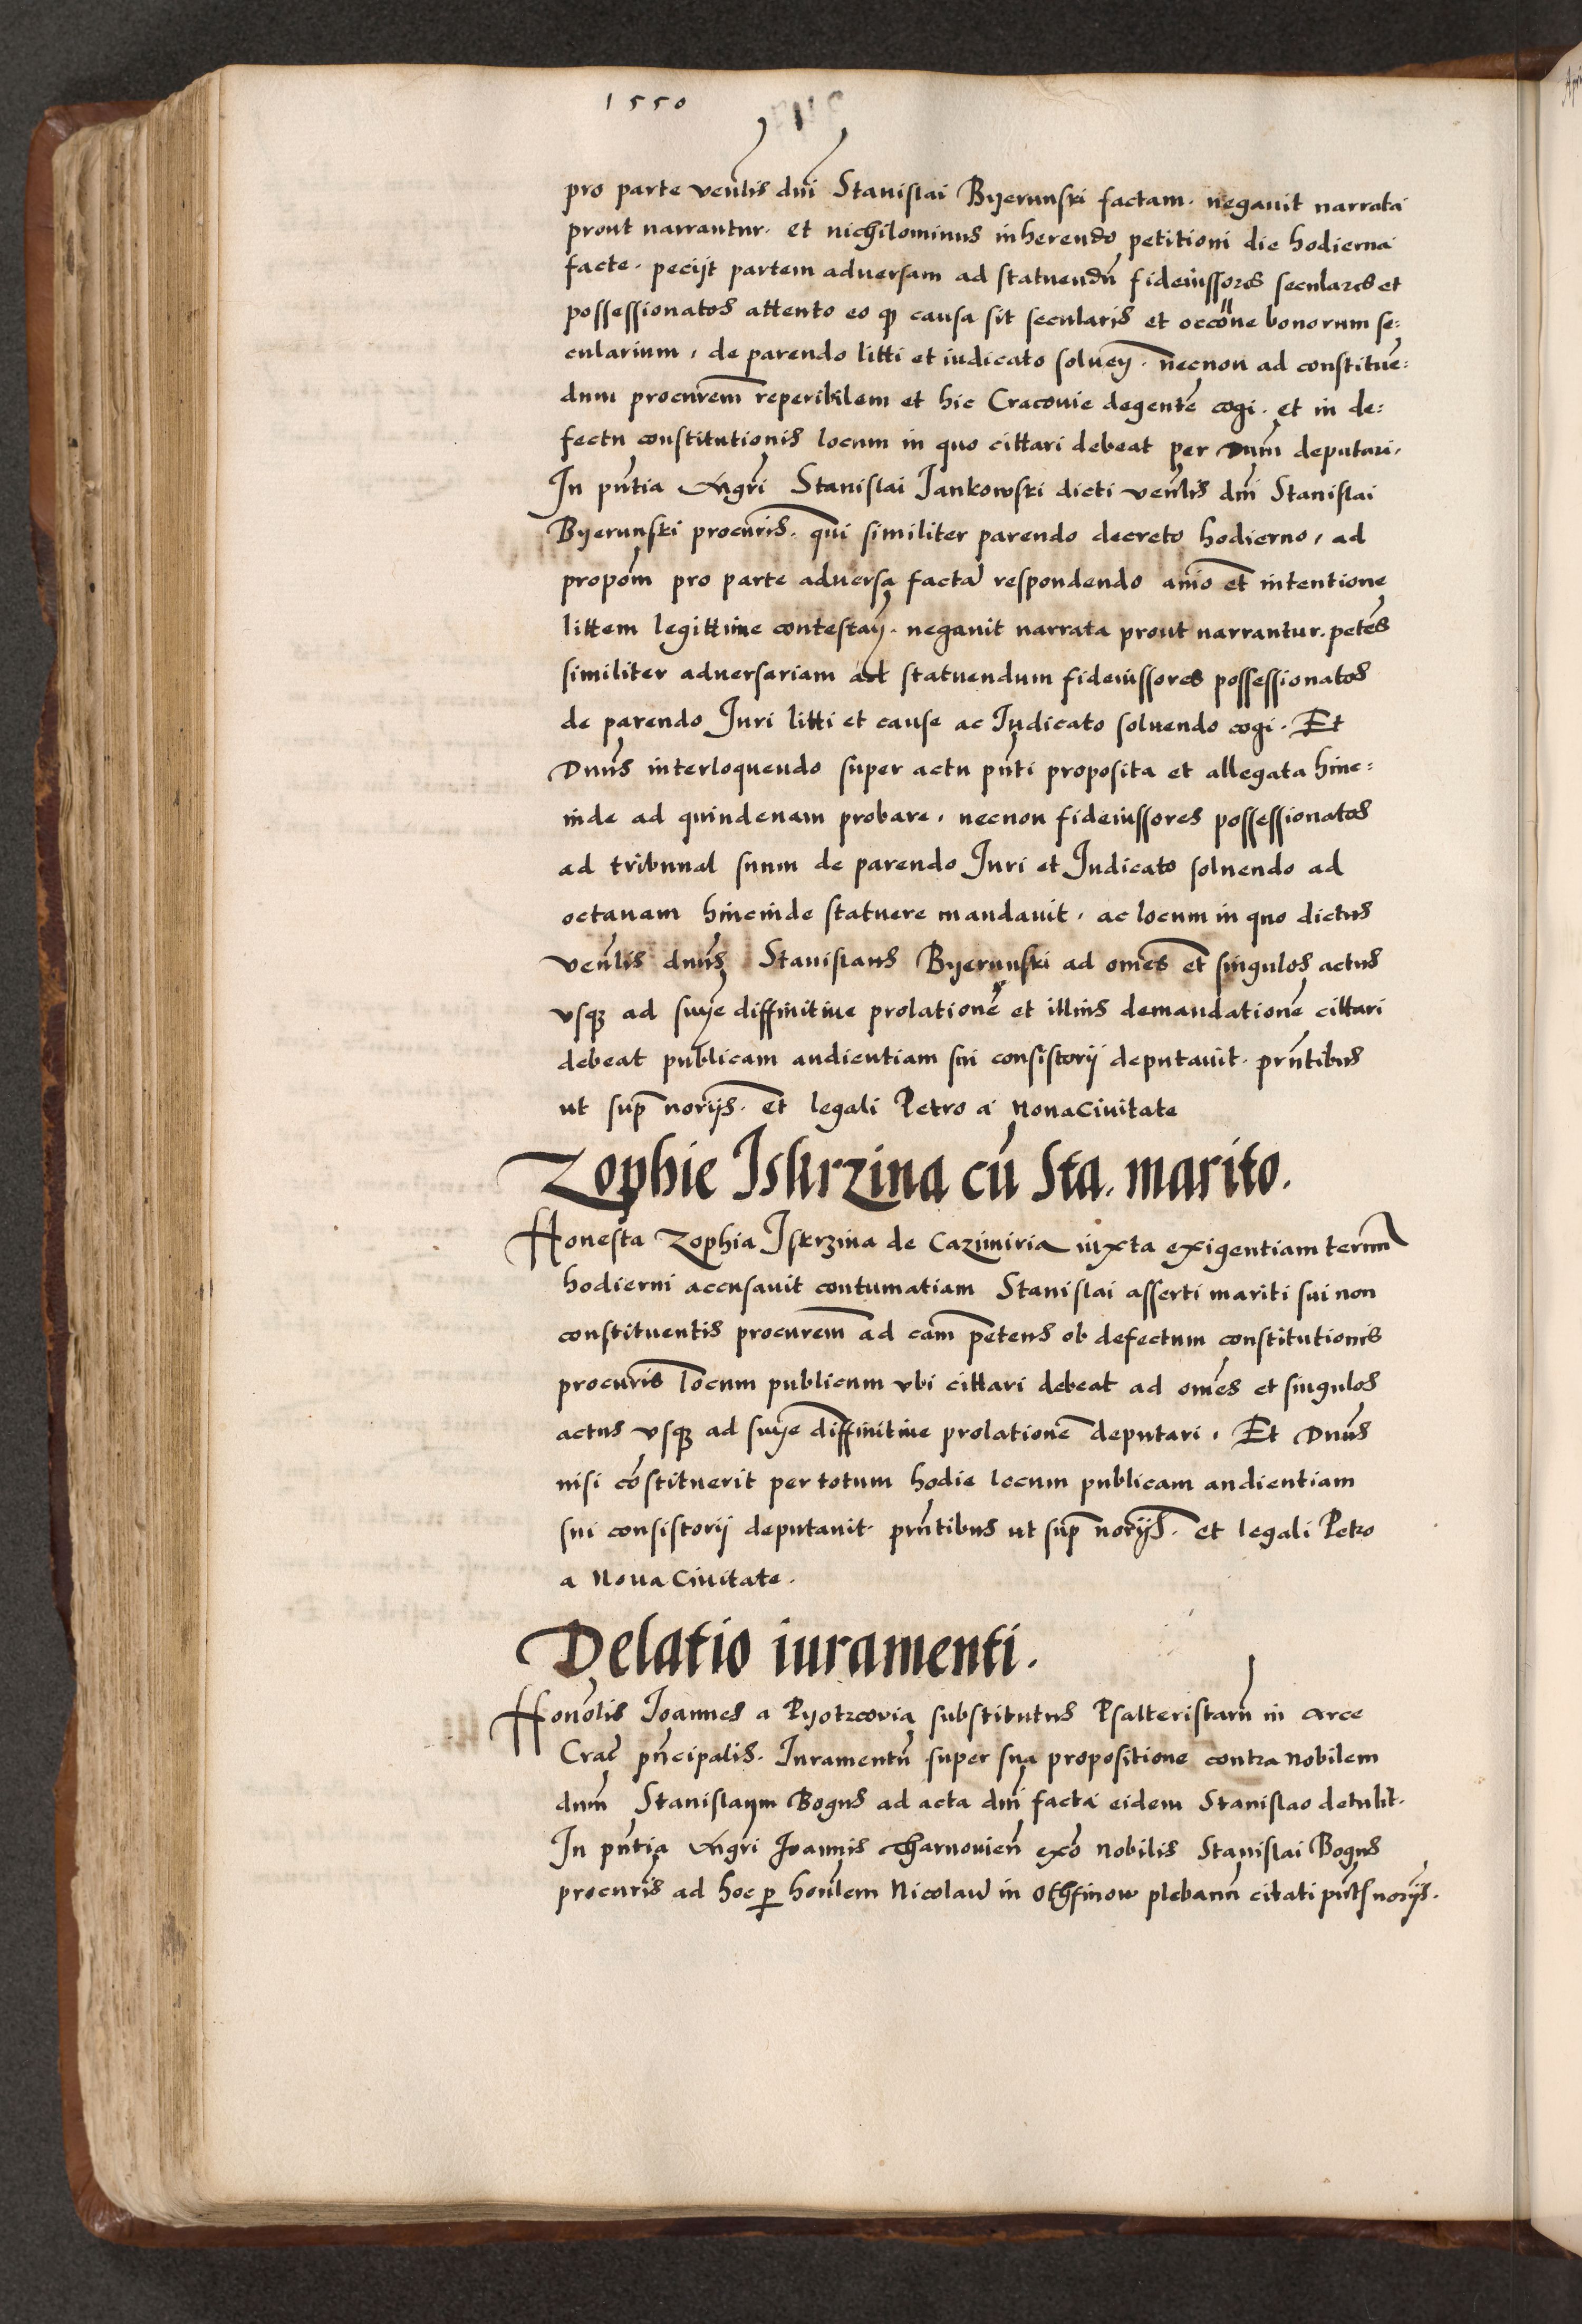 1550
pro parte veñlis dñi Stanislai Byerunski factam. negauit narrata
prout narrantur. et nichilominus inherendo petitioni die hodierna
facte. pecijt partem aduersam ad statuendũ fideiussores seculares et
possessionatos attento eo ꝙ causa sit secularis et occõne bonorum se:
cularium, de parendo litti et iudicato solueñ. necnon ad constituẽ:
dum procurem̃ reperibilem et hic Cracouie degentẽ cogi. et in de:
fectu constitutionis locum in quo cittari debeat per Dnum̃ deputari.
In pñtia Mgri Stanislai Jankowski dicti veñlis dñi Stanislai
Byerunski procuris̃. qui similiter parendo decreto hodierno, ad
propoñm pro parte aduersa factã respondendo aĩo et intentione
littem legittime contestañ. negauit narrata prout narrantur. petẽs
similiter aduersariam ad statuendum fideiussores possessionatos
de parendo Juri litti et cause ac Judicato soluendo cogi. Et
Dnus̃ interloquendo super actu pñti proposita et allegata hinc:
inde ad quindenam probare, necnon fideiussores possessionatos
ad tribunal suum de parendo Juri et Judicato soluendo ad
octauam hincinde statuere mandauit, ac locum in quo dictus
veñlis dnus̃ Stanislaus Byerunski ad om̃es et singulos actus
vsqꝫ ad sñie diffinitiue prolationẽ et illius demandationẽ cittari
debeat publicam audientiam sui consistorij deputauit. prñtibus
ut sup̃ norijs̃. et legali Petro a Noua Ciuitate
Zophie Iskrzina cũ Sta. marito.
Honesta Zophia Iskrzina de Cazimiria iuxta exigentiam termi
hodierni accusauit contumatiam Stanislai asserti mariti sui non
constituentis procurem̃ ad cam̃ petens ob defectum constitutionis
procuris̃ locum publicum vbi cittari debeat ad om̃es et singulos
actus vsqꝫ ad sñie diffinitiue prolationẽ deputari. Et Dnus̃
nisi cõstituerit per totum hodie locum publicam audientiam
sui consistorij deputauit. prñtibus ut sup̃ norijs̃. et legali Petro
a Noua Ciuitate.
Delatio iuramenti.
Honõlis Joannes a Pyotrcovia substitutus Psalteristarũ in Arce
Crac̃ pñcipalis. Iuramentũ super sua propositione contra nobilem
dnum̃ Stanislaum Bogus ad acta dñi facta eidem Stanislao detulit.
In pñtia Mgri Joannis Tharnouieñ ex̃o nobilis Stanislai Bogus
procuris̃ ad hoc ꝑ hoñlem Nicolaũ in Othfinow plebanũ citati pñtꝭ norijs̃.